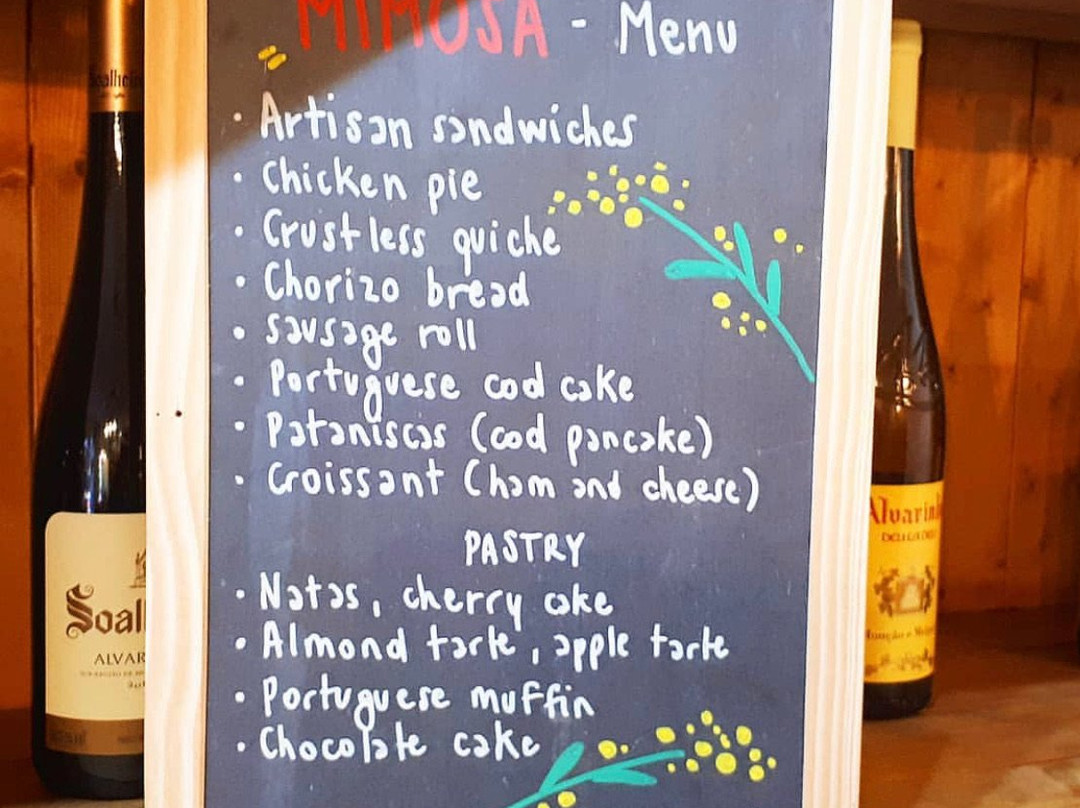 MIMOSA - Menu
· Artisan sandwiches
· Chicken pie
· Crustless quiche
· Chorizo bread
· sausage roll
· Portuguese cod cake
· Pataniscas (cod pancake)
· Croissant (ham and cheese)
PASTRY
· Natas, cherry cake
· Almond tarte, apple tarte
· Portuguese muffin
· Chocolate cake
Soal
ALVAR
Alvarinh
DEU LA DEU